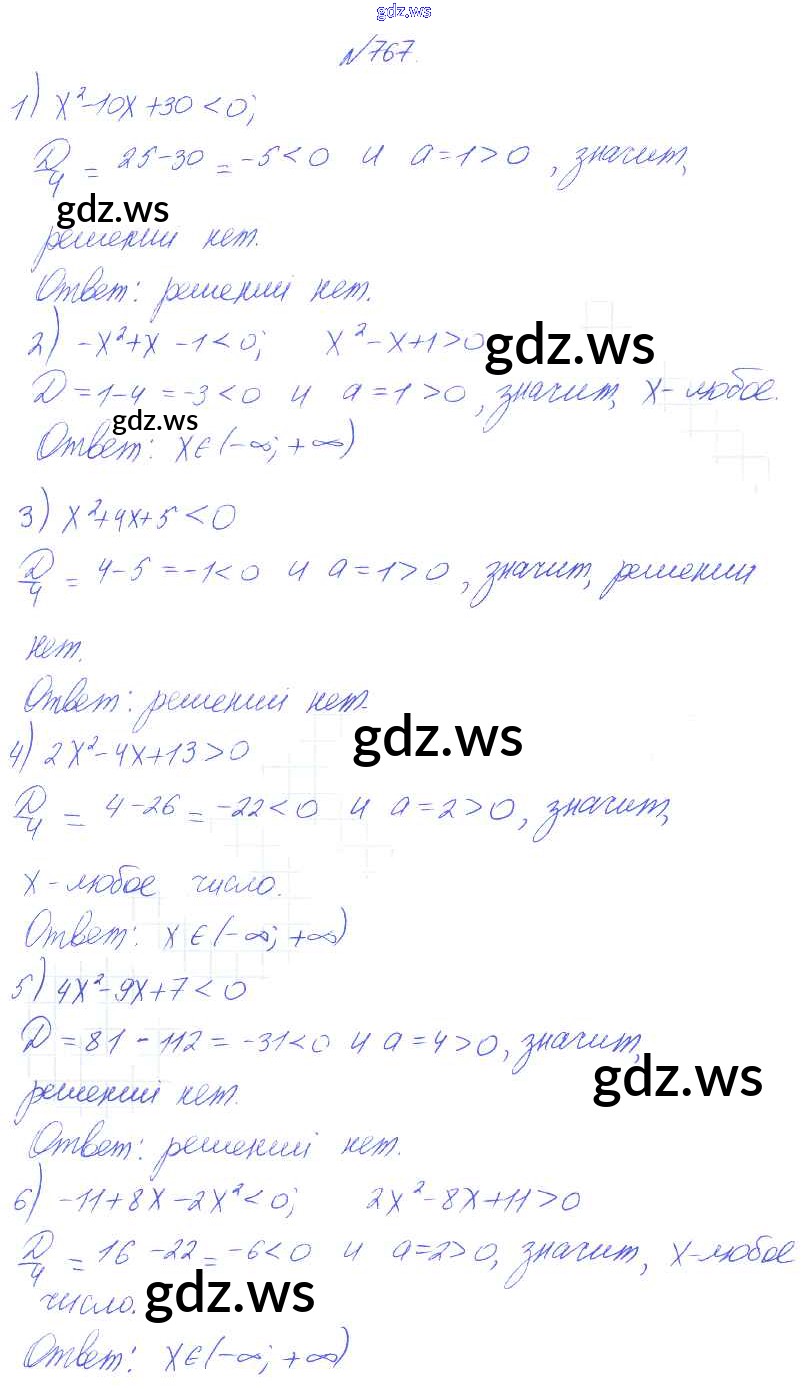 gdz.ws
№767.
1) x²-10x+30<0;
D/4 = 25-30 = -5<0 и a=1>0, значит,
gdz.ws
решений нет.
Ответ: решений нет.
2) -x²+x-1<0; x²-x+1>0
gdz.ws
D=1-4=-3<0 и a=1>0, значит, x-любое.
gdz.ws
Ответ: x∈(-∞;+∞)
3) x²+4x+5<0
D/4 = 4-5=-1<0 и a=1>0, значит, решений
нет.
Ответ: решений нет.
gdz.ws
4) 2x²-4x+13>0
D/4 = 4-26=-22<0 и a=2>0, значит,
x-любое число.
Ответ: x∈(-∞;+∞)
5) 4x²-9x+7<0
D=81-112=-31<0 и a=4>0, значит,
gdz.ws
решений нет.
Ответ: решений нет.
6) -11+8x-2x²<0; 2x²-8x+11>0
D/4 = 16-22=-6<0 и a=2>0, значит, x-любое
число.
gdz.ws
Ответ: x∈(-∞;+∞)